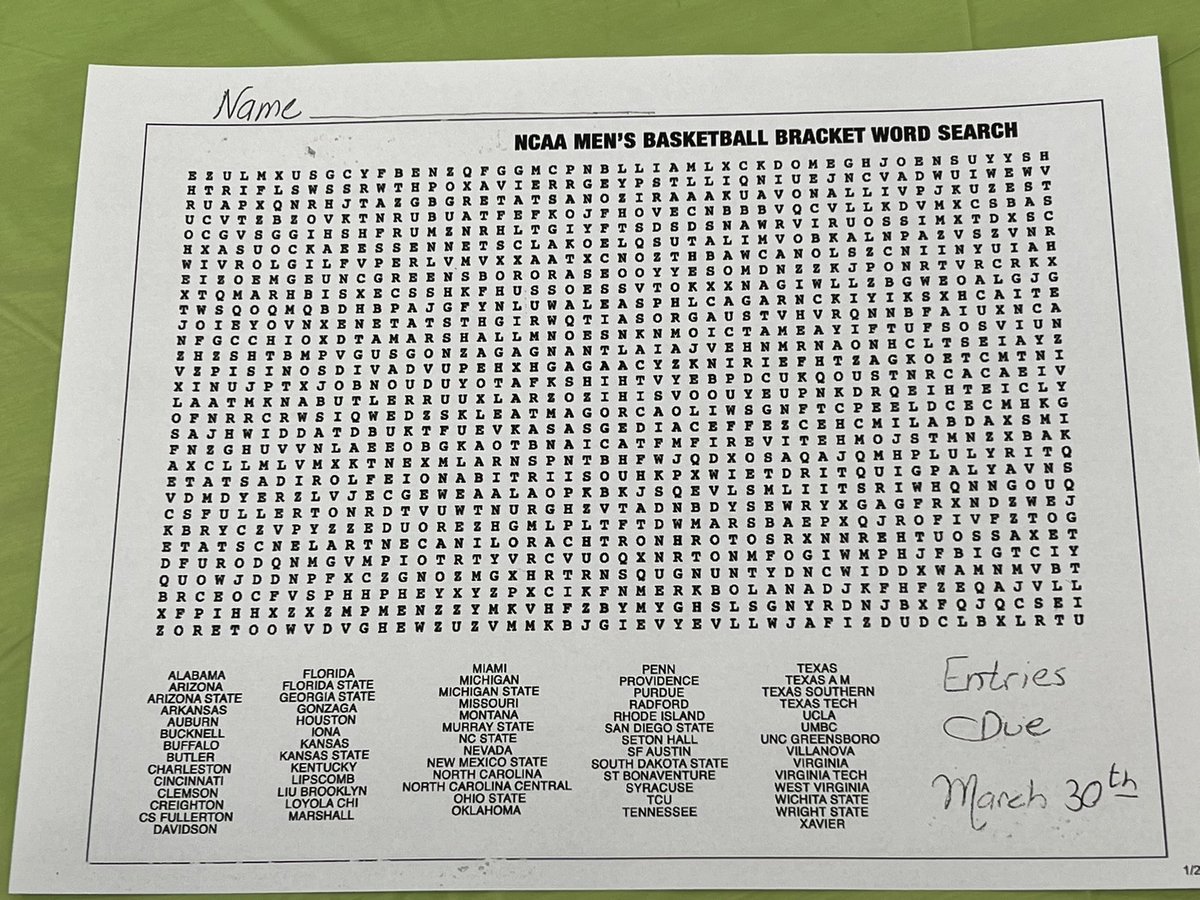 Name
NCAA MEN'S BASKETBALL BRACKET WORD SEARCH
E Z U L M X U S G C Y F B E N Z Q F G G M C P N B L L I A M L X C K D O M E G H J O E N S U Y Y S H
H T R I F L S W S S R W T H P O X A V I E R R G E Y P S T L L I Q N I U E J N C V A D W U I W E W V
R U A P X Q N R H J T A Z G B G R E T A T S A N O Z I R A A A K U A V O N A L L I V P J K U Z E S T
U C V T Z B Z O V K T N R U B U A T F E F K O J F H O V E C N B B B V Q C V L L K D V M X C S B A S
O C G V S G G I H S H F R U M Z N R H L T G I Y F T S D S D S N A W R V I R U O S S I M X T D X S C
H X A S U O C K A E E S S E N N E T S C L A K O E L Q S U T A L I M V O B K A L N P A Z V S Z V N R
W I V R O L G I L F V P E R L V M V X X A A T X C N O Z T H B A W C A N O L S Z C N I I N Y U I A H
E I Z O E M G E U N C G R E E N S B O R O R A S E O O Y Y E S O M D N Z Z K J P O N R T V R C R K X
X T Q M A R H B I S X E C S S H K F H U S S O E S S V T O K X X N A G I W L L Z B G W E O A L G J G
T W S Q O Q M Q B D H B P A J G F Y N L U W A L E A S P H L C A G A R N C K I Y I K S X H C A I T E
J O I E Y O V N X E N E T A T S T H G I R W Q T I A S O R G A U S T V H V R Q N N B F A I U X N C A
N F G C C H I O X D T A M A R S H A L L M N O E S N K N M O I C T A M E A Y I F T U F S O S V I U N
Z H Z S H T B M P V G U S G O N Z A G A G N A N T L A I A J V E H N M R N A O N H C L T S E I A Y Z
V Z P I S I N O S D I V A D V U P E H X H G A G A A C Y Z K N I R I E F H T Z A G K O E T C M T N I
X I N U J P T X J O B N O U D U Y O T A F K S H I H T V Y E B P D C U K Q O U S T N R C A C A E I V
L A A T M K N A B U T L E R R U U X L A R Z O Z I H I S V O O U Y E U P N K D R Q E I H T E I C L Y
O F N R R C R W S I Q W E D Z S K L E A T M A G O R C A O L I W S G N F T C P E E L D C E C M H K G
S A J H W I D D A T D B U K T F U E V K A S A S G E D I A C E F F E Z C E H C M I L A B D A X S M I
F N Z G H U V V N L A E E O B G K A O T B N A I C A T F M F I R E V I T E H M O J S T M N Z X B A K
A X C L L M L V M X K T N E X M L A R N S P N T B H F W J Q D X O S A Q A J Q M H P L U L Y R I T Q
E T A T S A D I R O L F E I O N A B I T R I I S O U H K P X W I E T D R I T Q U I G P A L Y A V N S
V D M D Y E R Z L V J E C G E W E A A L A O P K B K J S Q E V L S M L I I T S R I W H Q N N G O U Q
C S F U L L E R T O N R D T V U W T N U R G H Z V T A D N B D Y S E W R Y X G A G F R X N D Z W E J
K B R Y C Z V P Y Z Z E D U O R E Z H G M L P L T F T D W M A R S B A E P X Q J R O F I V F Z T O G
E T A T S C N E L A R T N E C A N I L O R A C H T R O N H R O T O S R X N N R E H T U O S S A X E T
D F U R O D Q N M G V M P I O T R T Y V R C V U O Q X N R T O N M F O G I W M P H J F B I G T C I Y
Q U O W J D D N P F X C Z G N O Z M G X H R T R N S Q U G N U N T Y D N C W I D D X W A M N M V B T
B R C E O C F V S P H H P H E Y X Y Z P X C I K F N M E R K B O L A N A D J K F H F Z E Q A J V L L
X F P I H H X Z X Z M P M E N Z Z Y M K V H F Z B Y M Y G H S L S G N Y R D N J B X F Q J Q C S E I
Z O R E T O O W V D V G H E W Z U Z V M M K B J G I E V Y E V L L W J A F I Z D U D C L B X L R T U
ALABAMA
ARIZONA
ARIZONA STATE
ARKANSAS
AUBURN
BUCKNELL
BUFFALO
BUTLER
CHARLESTON
CINCINNATI
CLEMSON
CREIGHTON
CS FULLERTON
DAVIDSON
FLORIDA
FLORIDA STATE
GEORGIA STATE
GONZAGA
HOUSTON
IONA
KANSAS
KANSAS STATE
KENTUCKY
LIPSCOMB
LIU BROOKLYN
LOYOLA CHI
MARSHALL
MIAMI
MICHIGAN
MICHIGAN STATE
MISSOURI
MONTANA
MURRAY STATE
NC STATE
NEVADA
NEW MEXICO STATE
NORTH CAROLINA
NORTH CAROLINA CENTRAL
OHIO STATE
OKLAHOMA
PENN
PROVIDENCE
PURDUE
RADFORD
RHODE ISLAND
SAN DIEGO STATE
SETON HALL
SF AUSTIN
SOUTH DAKOTA STATE
ST BONAVENTURE
SYRACUSE
TCU
TENNESSEE
TEXAS
TEXAS A M
TEXAS SOUTHERN
TEXAS TECH
UCLA
UMBC
UNC GREENSBORO
VILLANOVA
VIRGINIA
VIRGINIA TECH
WEST VIRGINIA
WICHITA STATE
WRIGHT STATE
XAVIER
Entries
Due
March 30th
1/2